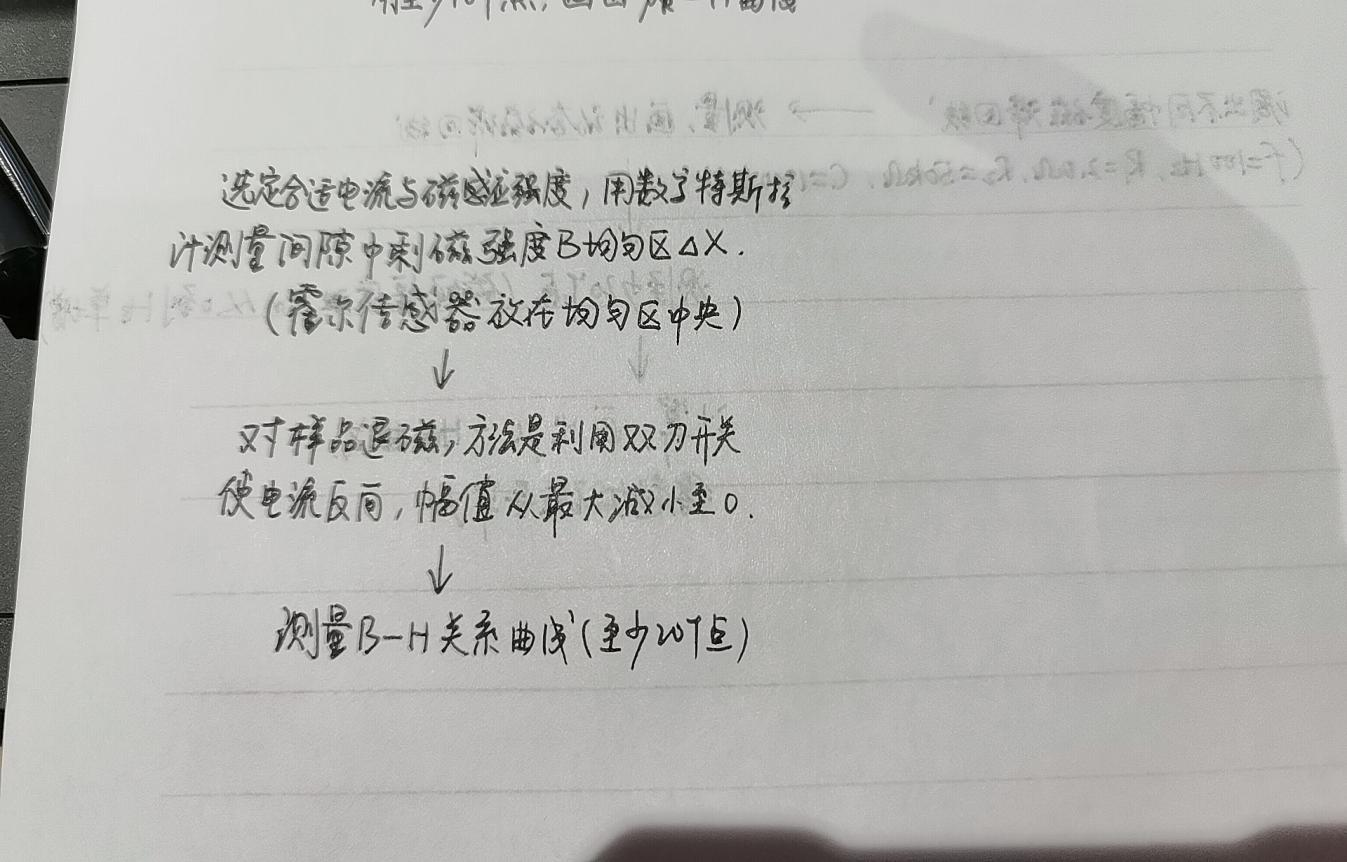 选定合适电流与磁感应强度，用数字特斯拉
计测量间隙中剩磁强度B均匀区△X.
(霍尔传感器放在均匀区中央)
↓
对样品退磁，方法是利用双刀开关
使电流反向，幅值从最大减小至0.
↓
测量B-H关系曲线(至少20个点)